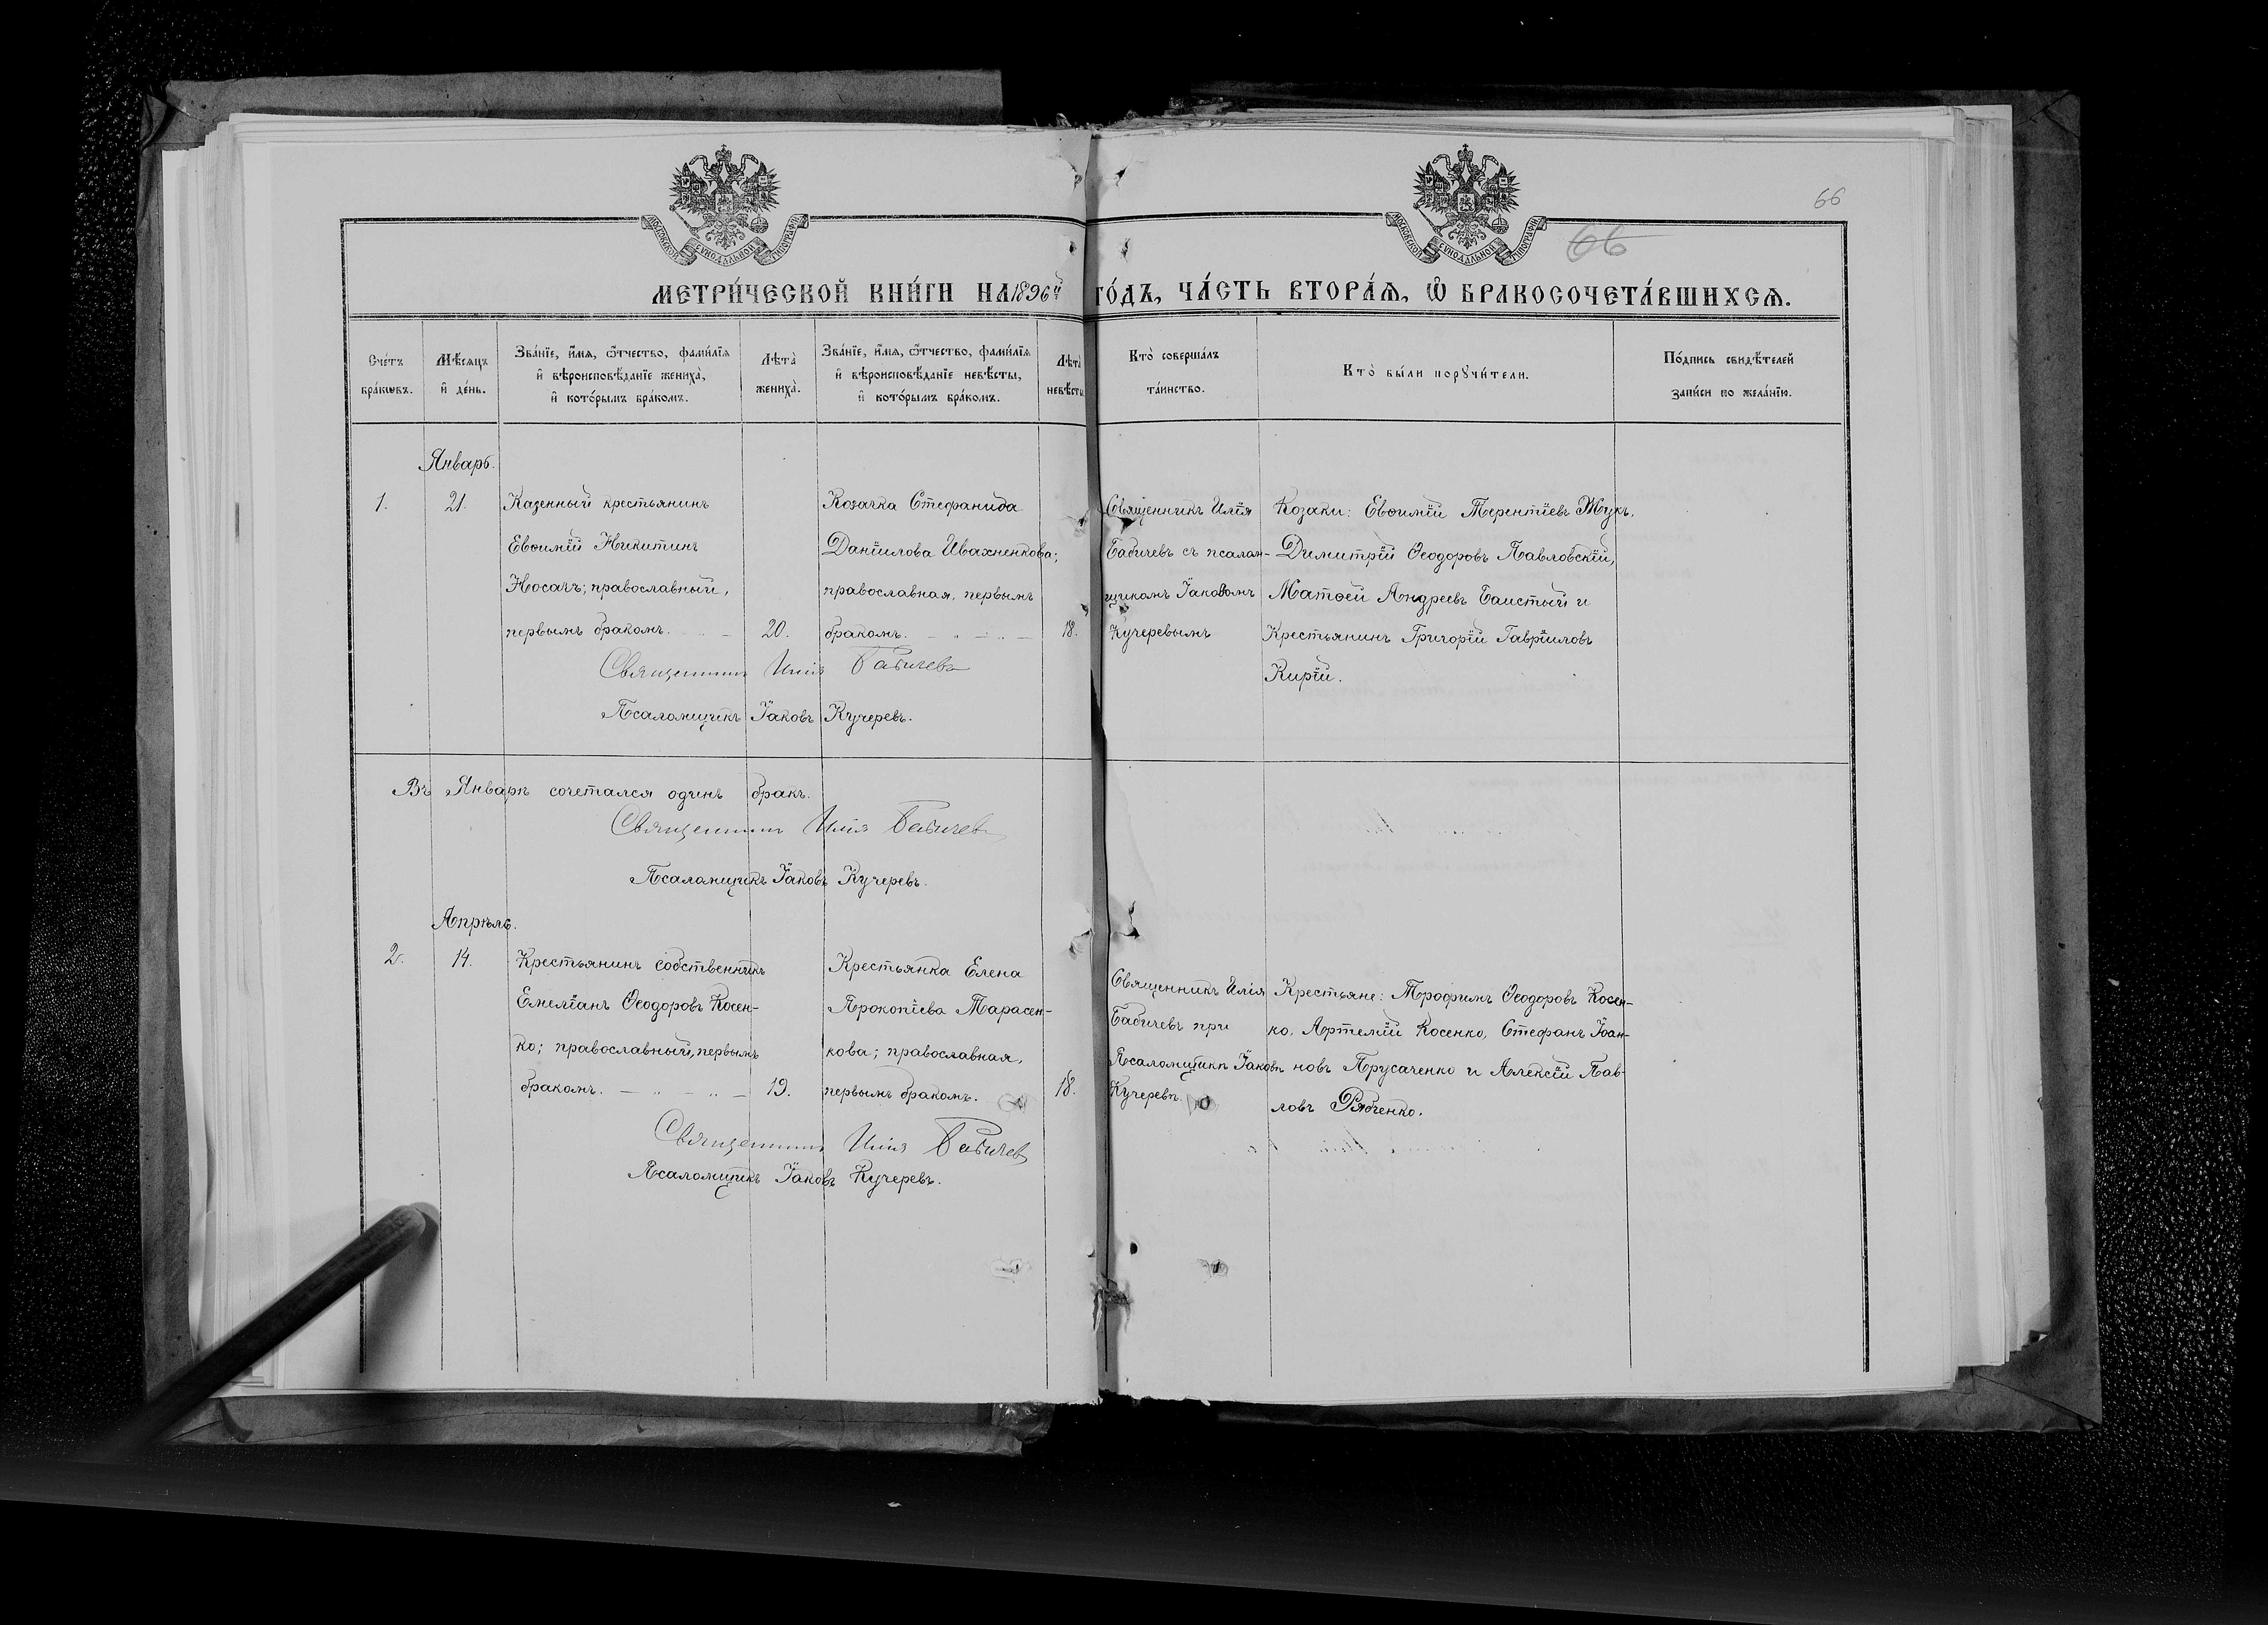 66
66
МОСКОВСКОЙ СУНОДАЛЬНОЙ ТИПОГРАФІИ
МОСКОВСКОЙ СУНОДАЛЬНОЙ ТИПОГРАФІИ
МЕТРИ́ЧЕСКОЙ КНИ́ГИ НА 1896й ГО́ДЪ, ЧА́СТЬ ВТОРА́Ѧ, Ѽ БРАКОСОЧЕТА́ВШИХСѦ.
Сче́тъ бра́кѡвъ.
Мѣ́сѧцъ и҆ де́нь.
Зва́нїе, и҆́мѧ, ѻ҆́тчество, фами́лїѧ и҆ вѣроисповѣ́данїе жениха̀, и҆ кото́рымъ бра́комъ.
Лѣта̀ жениха̀.
Зва́нїе, и҆́мѧ, ѻ҆́тчество, фами́лїѧ и҆ вѣроисповѣ́данїе невѣ́сты, и҆ кото́рымъ бра́комъ.
Лѣта̀ невѣ́сты
Кто̀ соверша́лъ та́инство.
Кто̀ бы́ли порꙋчи́тели.
По́дпись свидѣ́телей за́писи по жела́нїю.
Январь.
1.
21.
Казенный крестьянинъ
Евѳимій Никитинъ
Носачъ; православный,
первымъ бракомъ.
20.
Козачка Стефанида
Даніилова Ивахненкова;
православная, первымъ
бракомъ.
18.
Священникъ Илія
Бабичевъ съ псалом-
щикомъ Іаковомъ
Кучеревымъ
Козаки: Евѳимій Терентіевъ Жукъ,
Димитрій Ѳеодоровъ Павловскій,
Матѳей Андреевъ Баистый и
Крестьянинъ Григорій Гавріиловъ
Кирій.
Священникъ Илія Бабичевъ
Псаломщикъ Іаковъ Кучеревъ.
Въ Январѣ сочетался одинъ бракъ.
Священникъ Илія Бабичевъ
Псаломщикъ Іаковъ Кучеревъ.
Апрѣль.
2.
14.
Крестьянинъ собственникъ
Емеліанъ Ѳеодоровъ Косен-
ко; православный, первымъ
бракомъ.
19.
Крестьянка Елена
Прокопіева Тарасен-
кова; православная,
первымъ бракомъ.
18.
Священникъ Илія
Бабичевъ при
Псаломщикѣ Іаковѣ
Кучеревѣ.
Крестьяне: Трофимъ Ѳеодоровъ Косен-
ко, Артемій Косенко, Стефанъ Іоан-
новъ Прусаченко и Алексій Пав-
ловъ Рябченко.
Священникъ Илія Бабичевъ
Псаломщикъ Іаковъ Кучеревъ.